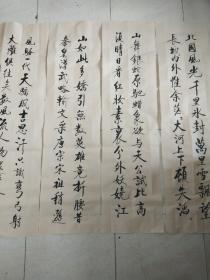 北国風光千里冰封萬里雪飄望
長城内外惟餘莽莽大河上下頓失滔
山舞銀蛇原馳蠟象欲与天公試比高
須晴日看紅妆素裹分外妖娆江
山如此多嬌引無数英雄競折腰昔
秦皇漢武略輸文采唐宗宋祖稍遜
風騷一代天驕成吉思汗只識彎弓射
大雕俱往矣数風流人物